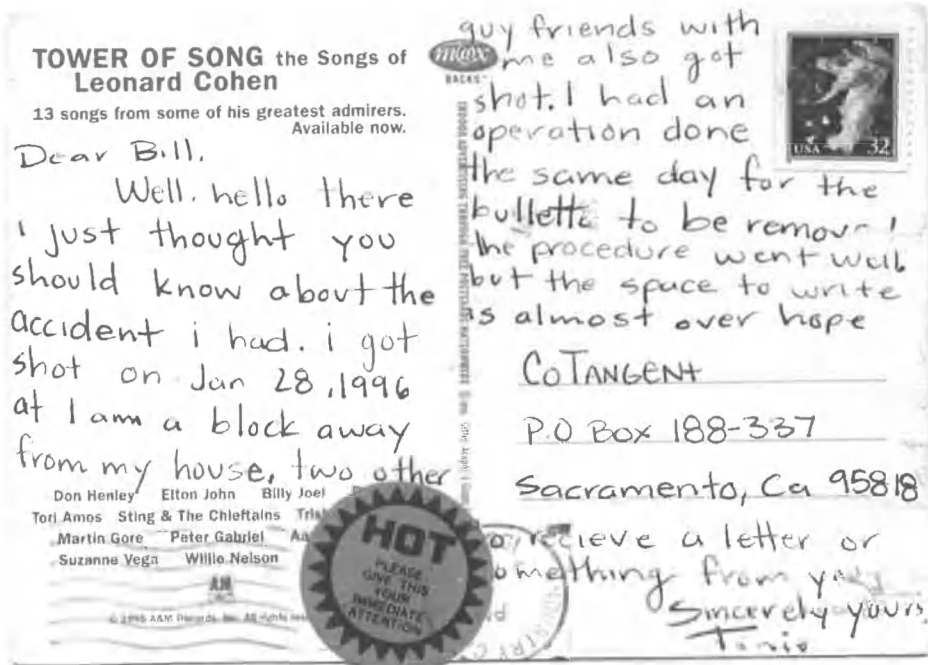 TOWER OF SONG the Songs of
Leonard Cohen
13 songs from some of his greatest admirers.
Available now.
Dear Bill.
Well. hello there
i just thought you
should know about the
accident i had. i got
shot on Jan 28, 1996
at 1 am a block away
from my house, two other
Don Henley Elton John Billy Joel
Tori Amos Sting & The Chieftains
Martin Gore Peter Gabriel
Suzanne Vega Willie Nelson
A&M
© 1995 A&M Records, Inc. All rights
HOT
PLEASE
GIVE THIS
YOUR
IMMEDIATE
ATTENTION
max
RACKS
guy friends with
me also got
shot. I had an
operation done
the same day for the
bullette to be
the procedure went well
but the space to write
is almost over hope
USA 32
COTANGENT
P.O BOX 188-337
Sacramento, Ca 95818
to recieve a letter or
something from you
Sincerely yours,